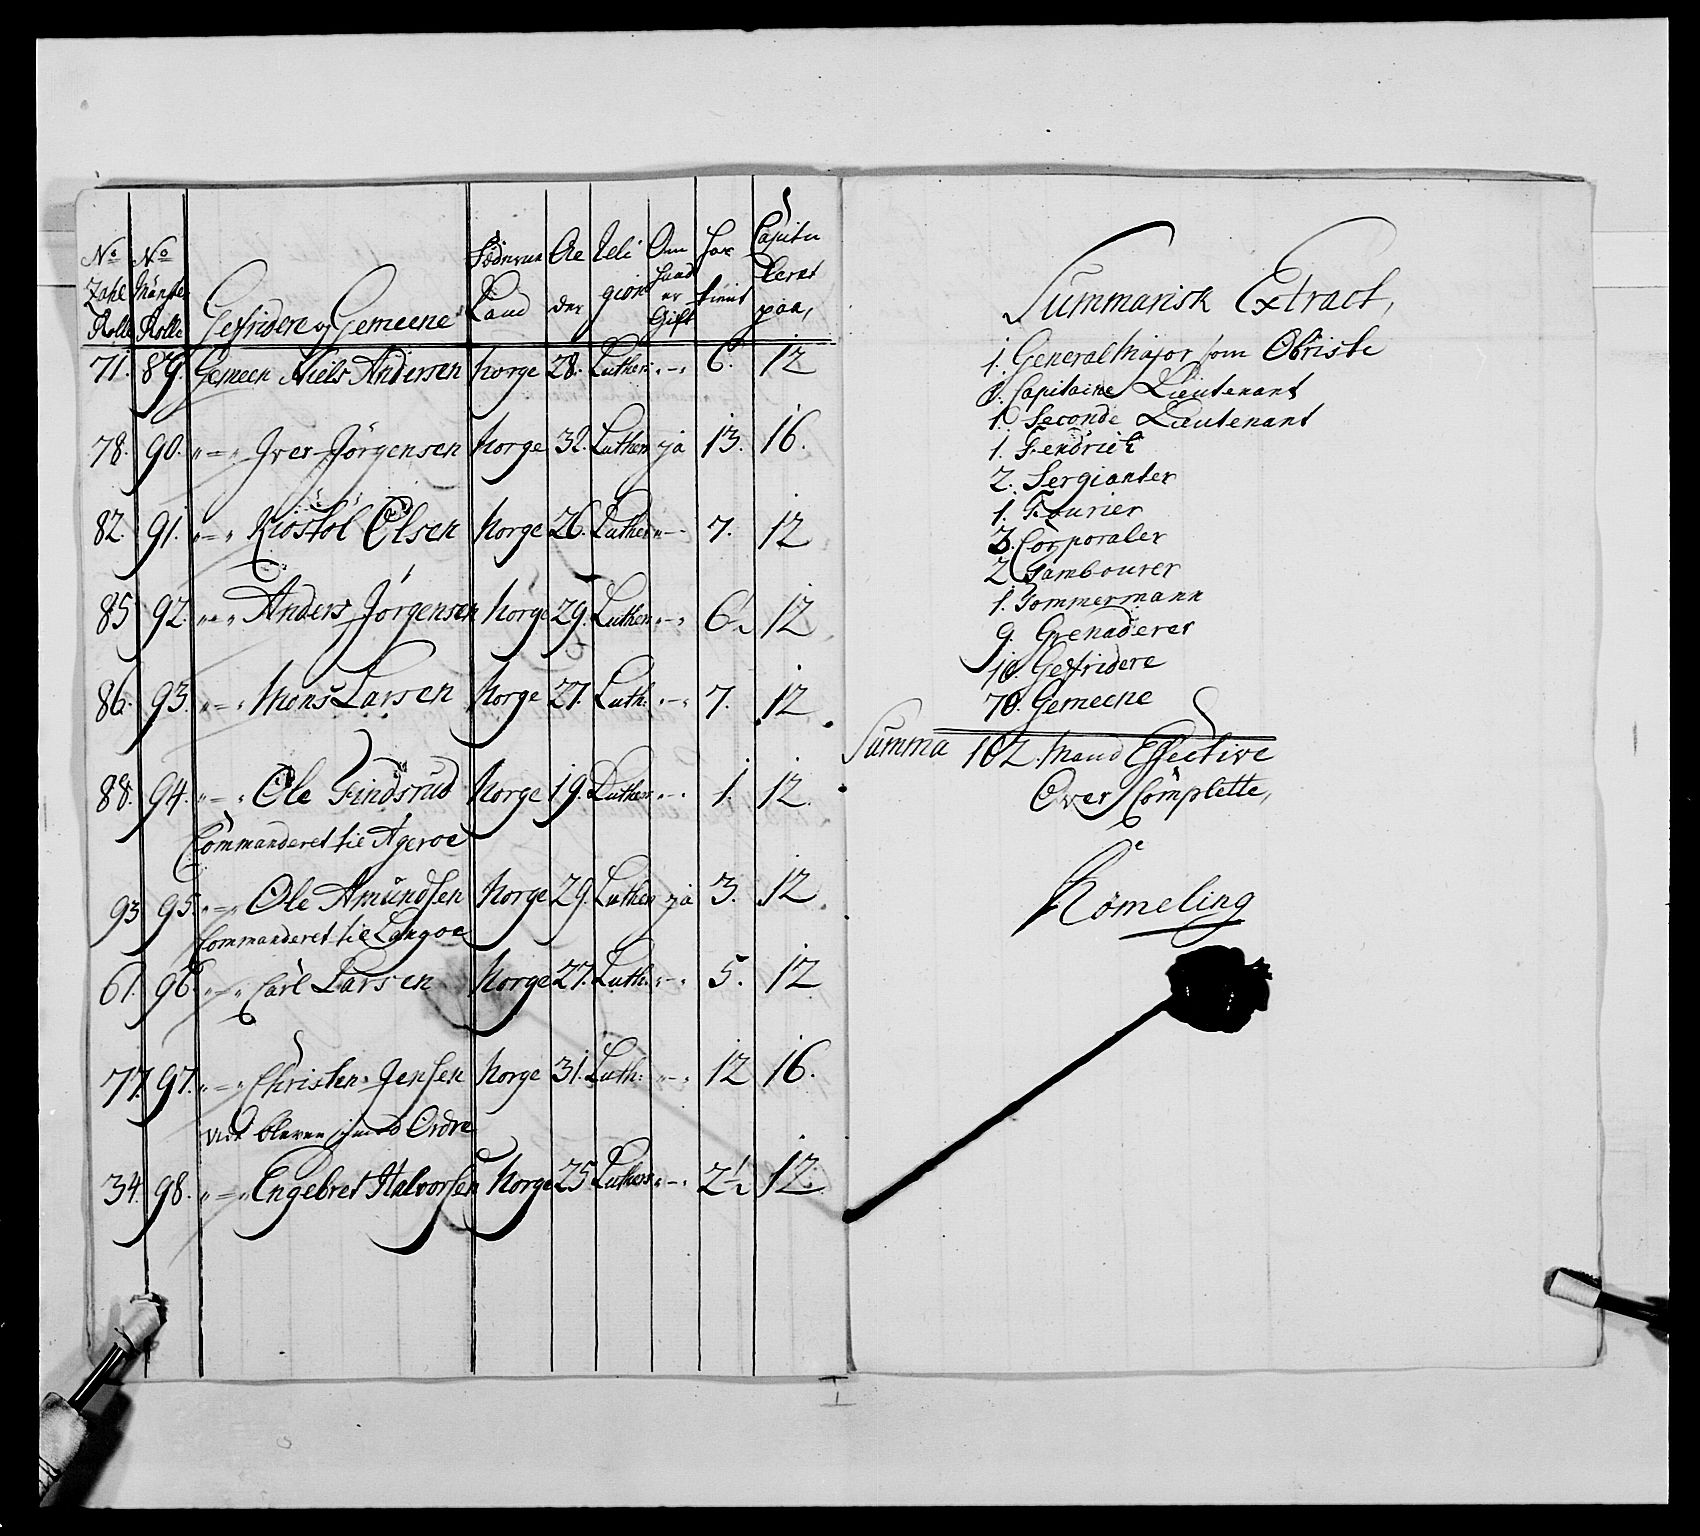 No Zahl Rolle No Mönster Rolle Gefridere og Gemeene Födnrun Land Ae der Religion Om hand er Gift har tient Capitulerat paa,
71. 89. Gemeen Niels Andersen Norge 28. Luthen „-„ 6. 12
78. 90. „=„ Iver Jörgensen Norge 32. Luthen ja 13. 16.
82. 91. „=„ Kiöstöl Olsen Norge 26. Luthen „- 7. 12
85 92. „=„ Anders Jörgensen Norge 29. Luthen „-„ 6½ 12
86. 93. „=„ Mons Larsen Norge 27. Luth: „-„ 7. 12
88. 94. „=„ Ole Findsrud Norge 19. Luthen „-„ 1. 12.
Commanderet til Ageroe
93 95. „=„ Ole Amundsen Norge 29. Luthen ja 3. 12
Commanderet til Langoe
61. 96 „=„ Carl Larsen Norge 27. Luth: „-„ 5. 12
77. 97. „=„ Christen Jensen Norge 31. Luth: „-„ 12 16.
Ordre
34. 98. „=„ Engebret Halvorsen Norge 25 Luthen „-„ 2½ 12.
Summarisk Extract,
1. General Major som Obriste
1. Capitaine Lieutenant
1. Seconde Lieutenant
1. Fendrich
2. Sergianter
1. Fourier
3. Corporaler
2. Tambourer
1. Tommermann
9. Grenaderer
10. Gefridere
70. Gemeene
Summa 102. Mand Effective
Over Complette,
Römeling